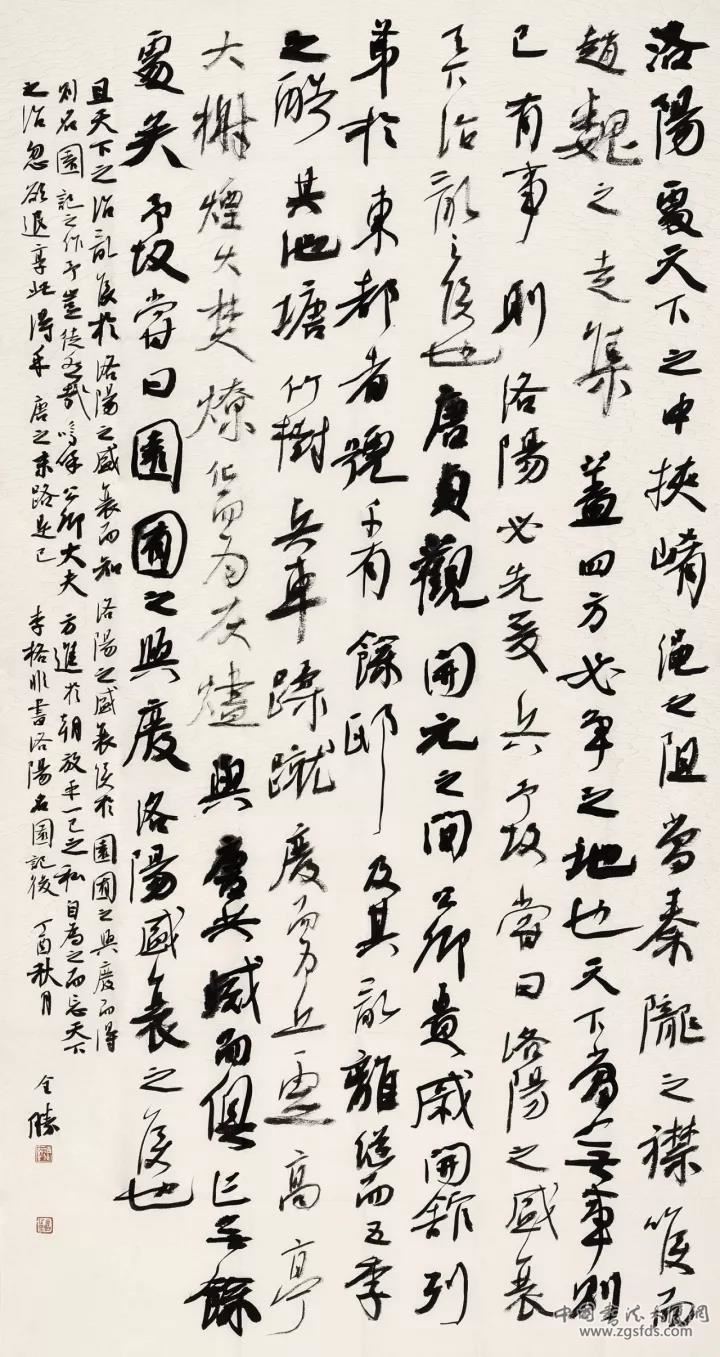 洛陽處天下之中挾崤澠之阻當秦隴之襟喉而
趙魏之走集蓋四方必爭之地也天下當無事則
已有事則洛陽必先受兵予故嘗曰洛陽之盛衰
天下治亂之候也唐貞觀開元之間公卿貴戚開館列
第於東都者號千有餘邸及其亂離繼而五季
之酷其池塘竹樹兵車蹂蹴廢而為丘墟高亭
大榭煙火焚燎化而為灰燼與唐共滅而俱亡無餘
處矣予故嘗曰園圃之興廢洛陽盛衰之候也
且天下之治亂候於洛陽之盛衰而知洛陽之盛衰候於園圃之興廢而得
則名園記之作予豈徒然哉嗚呼公卿大夫方進於朝放乎一己之私自為之而忘天下
之治忽欲退享此得乎唐之末路是已 李格非書洛陽名園記後 丁酉秋月 全勝
www.zgsfds.com